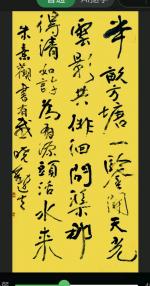 半畝方塘一鑒開天光
雲影共徘徊問渠那
得清如許為有源頭活水来
朱熹觀書有感